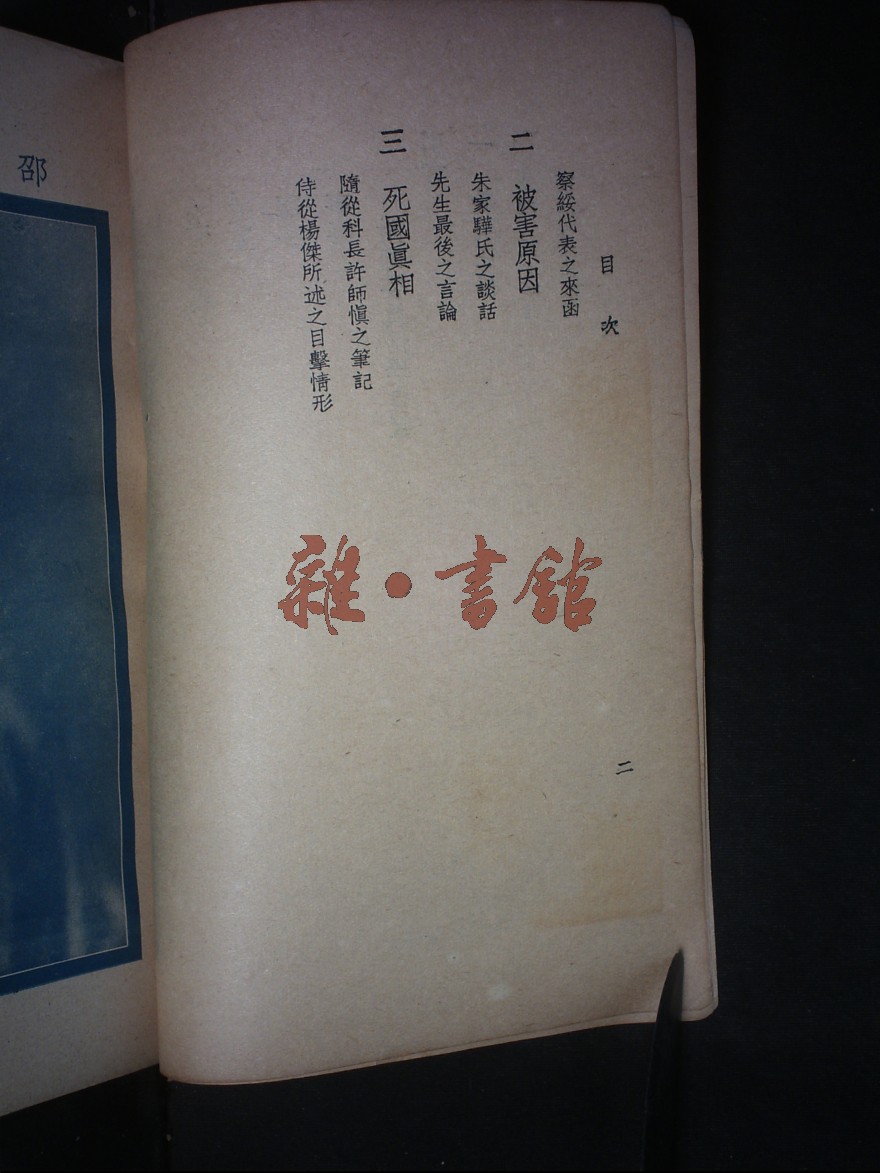 目次
察綏代表之來函
二 被害原因
朱家驊氏之談話
先生最後之言論
三 死國眞相
隨從科長許師慎之筆記
侍從楊傑所述之目擊情形
二
邵
雜•書館